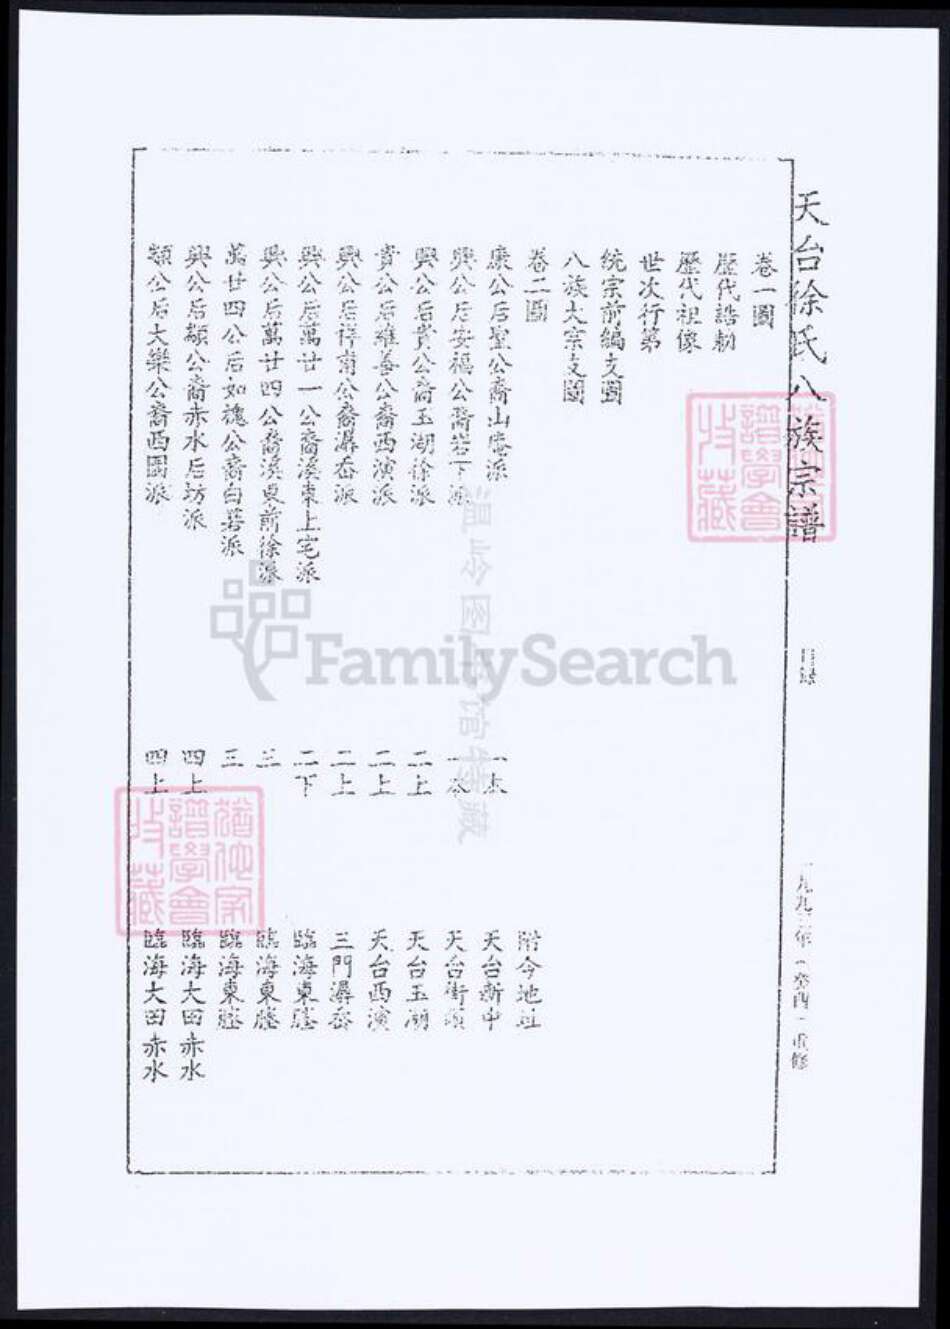 天台徐氏八族宗譜
目録
一九九三年（癸酉）重修
卷一圖
歷代誥勅
歷代祖像
世次行第
統宗前編支圖
八族大宗支圖
卷二圖
附今地址
康公后聖公裔山𢊍派 一本 天台新中
興公后安福公裔岩下派 一本 天台街頭
興公后貴公裔玉湖徐派 二上 天台玉湖
貴公后維善公裔西演派 二上 天台西演
興公后祥甫公裔潺岙派 二上 三門潺岙
興公后萬廿一公裔溪東上宅派 二下 臨海東塍
興公后萬廿四公裔溪東前徐派 三 臨海東塍
萬廿四公后如槐公裔白岩派 三 臨海東塍
興公后顯公裔赤水后坊派 四上 臨海大田赤水
顯公后大樂公裔西園派 四上 臨海大田赤水
譜學會
收藏
譜學會
收藏
温岭图书馆特藏
FamilySearch